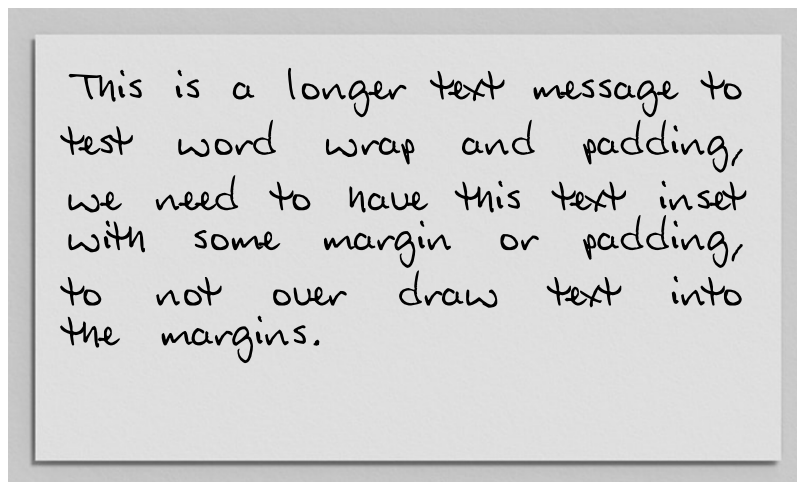 This is a longer text message to
test word wrap and padding,
we need to have this text inset
with some margin or padding,
to not over draw text into
the margins.